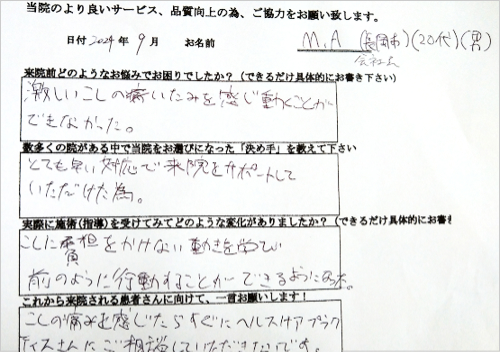 当院のより良いサービス、品質向上の為、ご協力をお願い致します。
日付 2024年 9月 お名前 M.A (長岡市)(20代)(男)
会社員
来院前どのようなお悩みでお困りでしたか?(できるだけ具体的にお書き下さい)
激しいこしの痛いたみを感じ動くことが
できなかった。
数多くの院がある中で当院をお選びになった「決め手」を教えて下さい
とても早い対応で来院をサポートして
いただけた為。
実際に施術(指導)を受けてみてどのような変化がありましたか?(できるだけ具体的にお書き
こしに負担をかけない動きを学び
前のように行動することができるようになった。
これから来院される患者さんに向けて、一言お願いします!
こしの痛みを感じたらすぐにヘルスケアプラク
ティスさんにご相談していただきたいです。